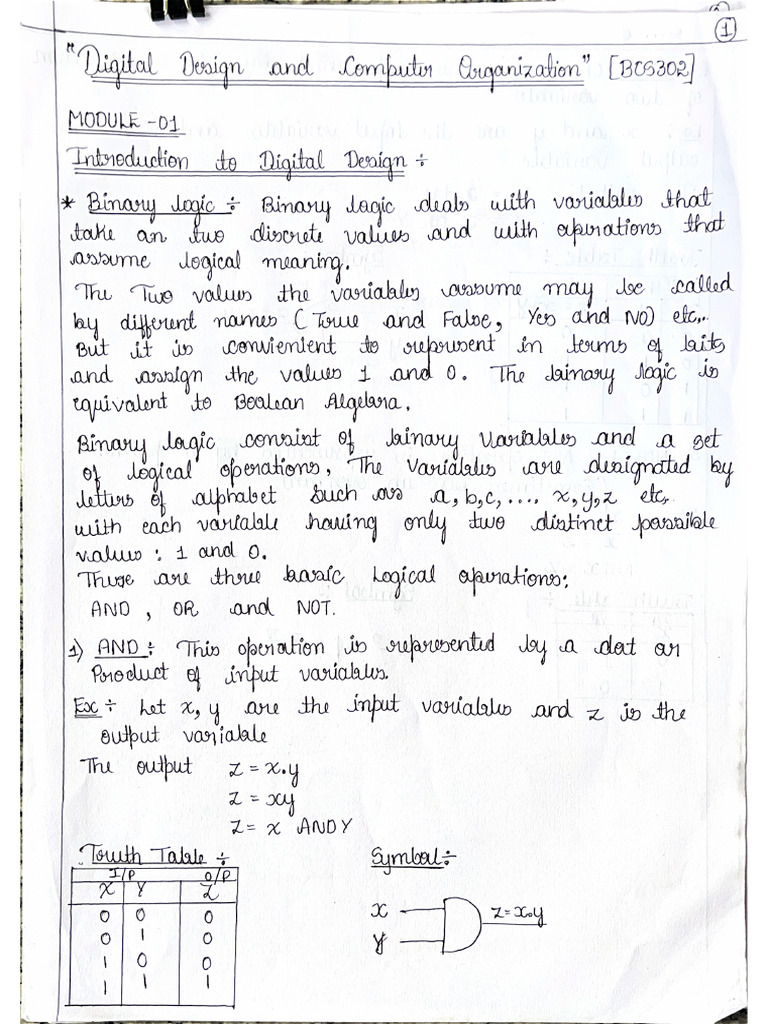 1
"Digital Design and Computer Organization" [BCS302]
MODULE -01
Introduction to Digital Design ÷
* Binary logic ÷ Binary logic deals with variables that
take on two discrete values and with operations that
assume logical meaning.
The Two values the variables assume may be called
by different names (True and False, Yes and NO) etc..
But it is convienient to represent in terms of bits
and assign the values 1 and 0. The binary logic is
equivalent to Boolean Algebra.
Binary logic consist of binary Variables and a set
of logical operations, The Variables are designated by
letters of alphabet such as a, b, c, ...., x, y, z etc.
with each variable having only two distinct possible
values : 1 and 0.
These are three basic Logical operations:
AND , OR and NOT.
1) AND ÷ This operation is represented by a dot or
Product of input variables.
Ex ÷ Let x, y are the input variables and z is the
output variable
The output Z = x.y
Z = xy
Z = x AND Y
Truth Table ÷ Symbol ÷
I/P O/P
X Y Z
0 0 0
0 1 0
1 0 0
1 1 1
X
Y
Z = x.y